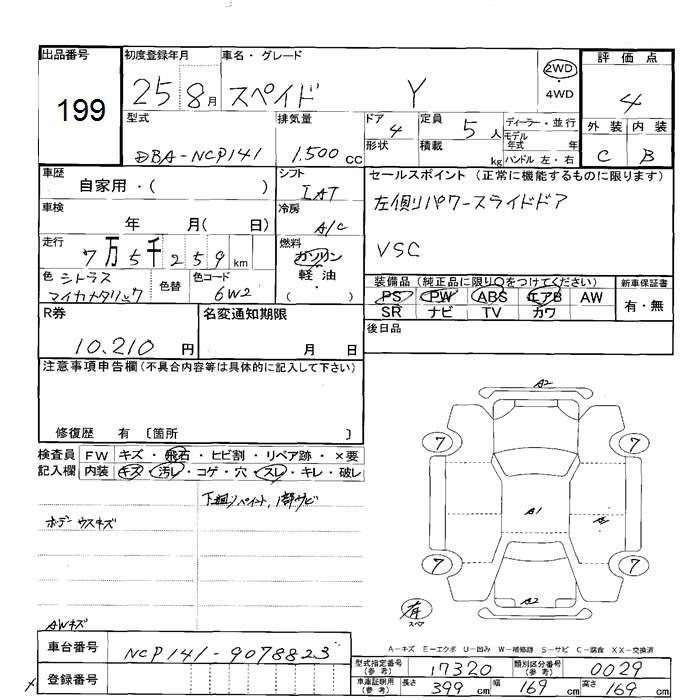 出品番号
199
初度登録年月
25 8月
車名・グレード
スペイド Y
2WD
・
4WD
評価点
4
外装 内装
C B
型式
DBA-NCP141
排気量
1.500 CC
ドア
4
形状
定員
5 人
積載
kg
ディーラー・並行
モデル
年式 年
ハンドル 左・右
車歴
自家用・( )
車検
年 月( 日)
走行
7万5千259 km
色 シトラス
マイカメタリック
色替
色コード
6W2
シフト
IAT
冷房
A/C
燃料
ガソリン
軽・油
( )
セールスポイント (正常に機能するものに限ります)
左側リパワースライドドア
VSC
装備品 (純正品に限り○をつけてください)
PS PW ABS エアB AW
SR ナビ TV カワ
新車保証書
有・無
後日品
R券
10,210 円
名変通知期限
月 日
注意事項申告欄 (不具合内容等は具体的に記入して下さい)
修復歴 有 〔箇所 〕
検査員
記入欄
FW キズ・飛石・ヒビ割・リペア跡・×要
内装 キズ・汚レ・コゲ・穴・スレ・キレ・破レ
下廻りペイント、1部サビ
ボデーウスキズ
AWキズ
A2
7 7
A1
7 7
A2
有
スペア
A-キズ E-エクボ U-凹み W-補修跡 S-サビ C-腐食 XX-交換済
車台番号
NCP141-9078823
登録番号
型式指定番号
(参考)
17320
類別区分番号
(参考)
0029
車庫証明用
(参考)
長さ 399 cm 幅 169 cm 高さ 169 cm